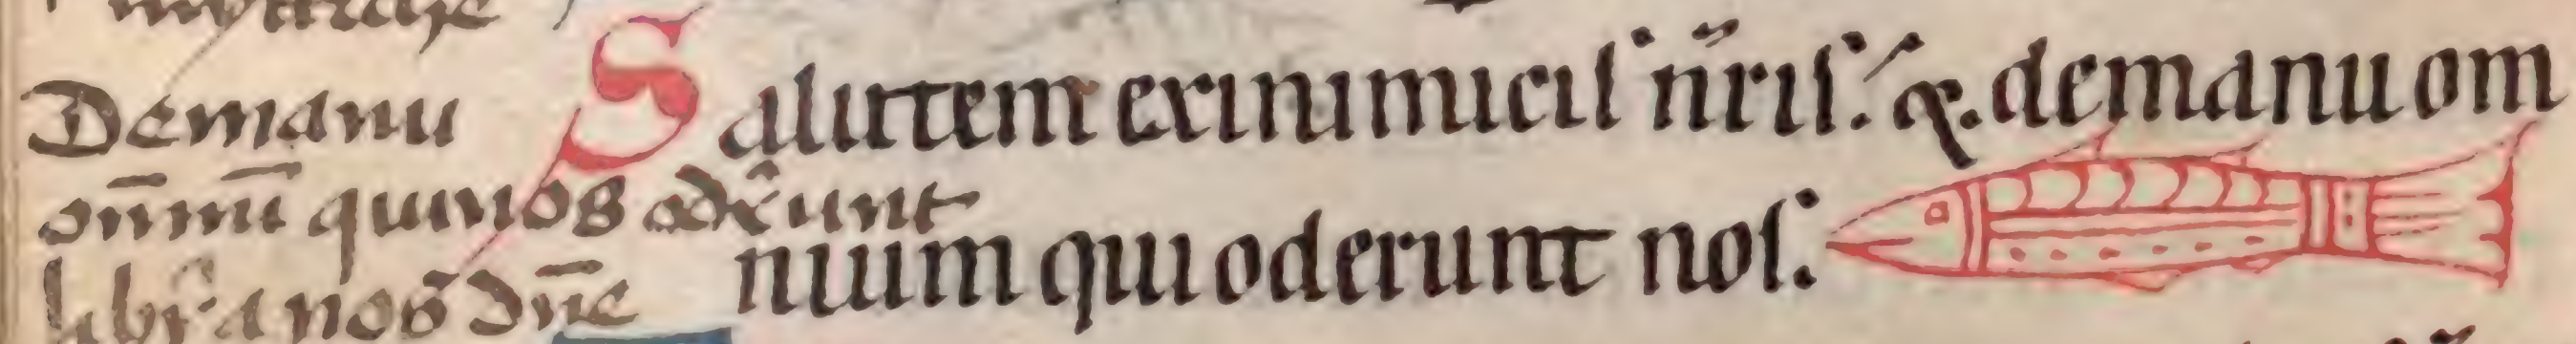 De manu
om̄niū qui nos oder̄unt
libr̄a nos dn̄e
Salutem ex inimicis nr̄is: & de manu om
nium qui oderunt nos.